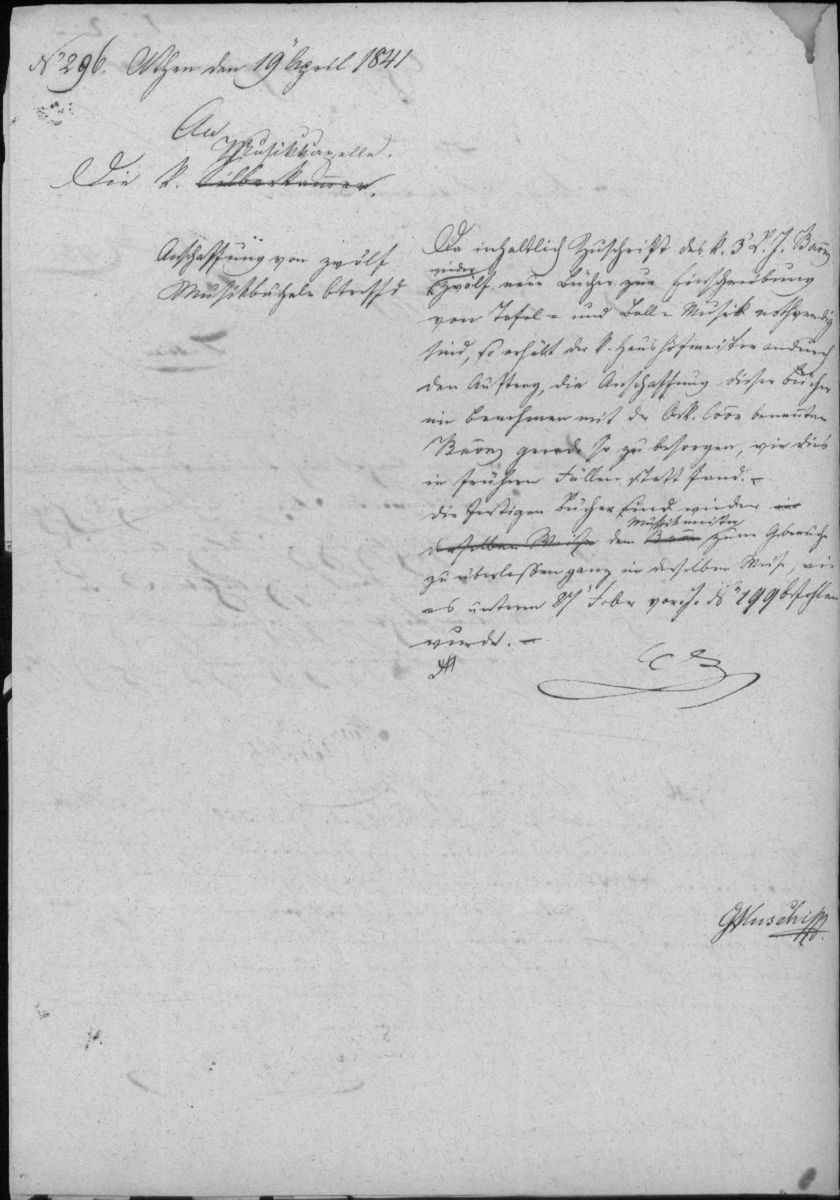 No 296. Athen den 19 April 1841
An
Musikkapelle.
Die k. Silberkammer.
Anschaffung von zwölf
Musikbücheln betreffd
Da inhaltlich Zuschrift des k.
wieder
zwölf neue Bücher zur Einschreibung
von Tafel- und Ball-Musik nothwendig
sind, so erhält der k. Haushofmeister andurch
den Auftrag, die Anschaffung dieser Bücher
im Benehmen mit
gerade so zu besorgen, wie dies
in frühern Fällen statt fand. –
die fertigen Bücher sind wieder in
Musikmeister
derselben Weise dem zum Gebrauche
zu überlassen ganz in derselben Weise, wie
es unterm 27 Febr vor. J. No 199 befohlen
wurde. –